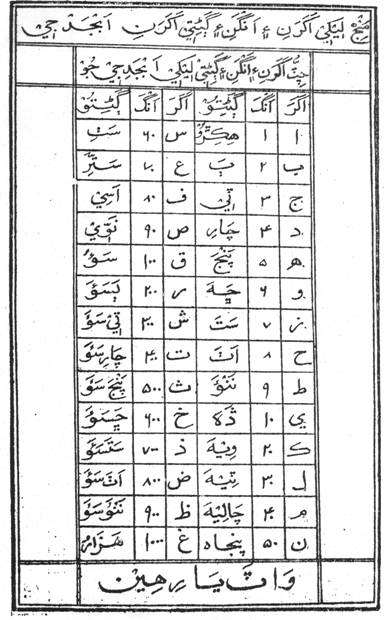 ليکي اکرن ۽ انگن ۽ ڳڻتي اکرن ابجد جي
اکرن ۽ انگن ۽ ڳڻتي ليکي ابجد جي جو
اکر انگ ڳڻتو اکر انگ ڳڻتو
ا ۱ هڪڙو س ۶۰ سٺ
ب ۲ ٻ ع ۷۰ ستر
ج ۳ ٽي ف ۸۰ اسي
د ۴ چار ص ۹۰ نوي
ه ۵ پنج ق ۱۰۰ سؤ
و ۶ ڇه ر ۲۰۰ ٻسؤ
ز ۷ ست ش ۳۰۰ ٽي سؤ
ح ۸ اٺ ت ۴۰۰ چار سؤ
ط ۹ نئو ث ۵۰۰ پنج سؤ
ي ۱۰ ڏه خ ۶۰۰ ڇسؤ
ک ۲۰ ويه ذ ۷۰۰ ستسؤ
ل ۳۰ ٽيه ض ۸۰۰ اٺ سؤ
م ۴۰ چاليه ظ ۹۰۰ نئو سؤ
ن ۵۰ پنجاه غ ۱۰۰۰ هزار